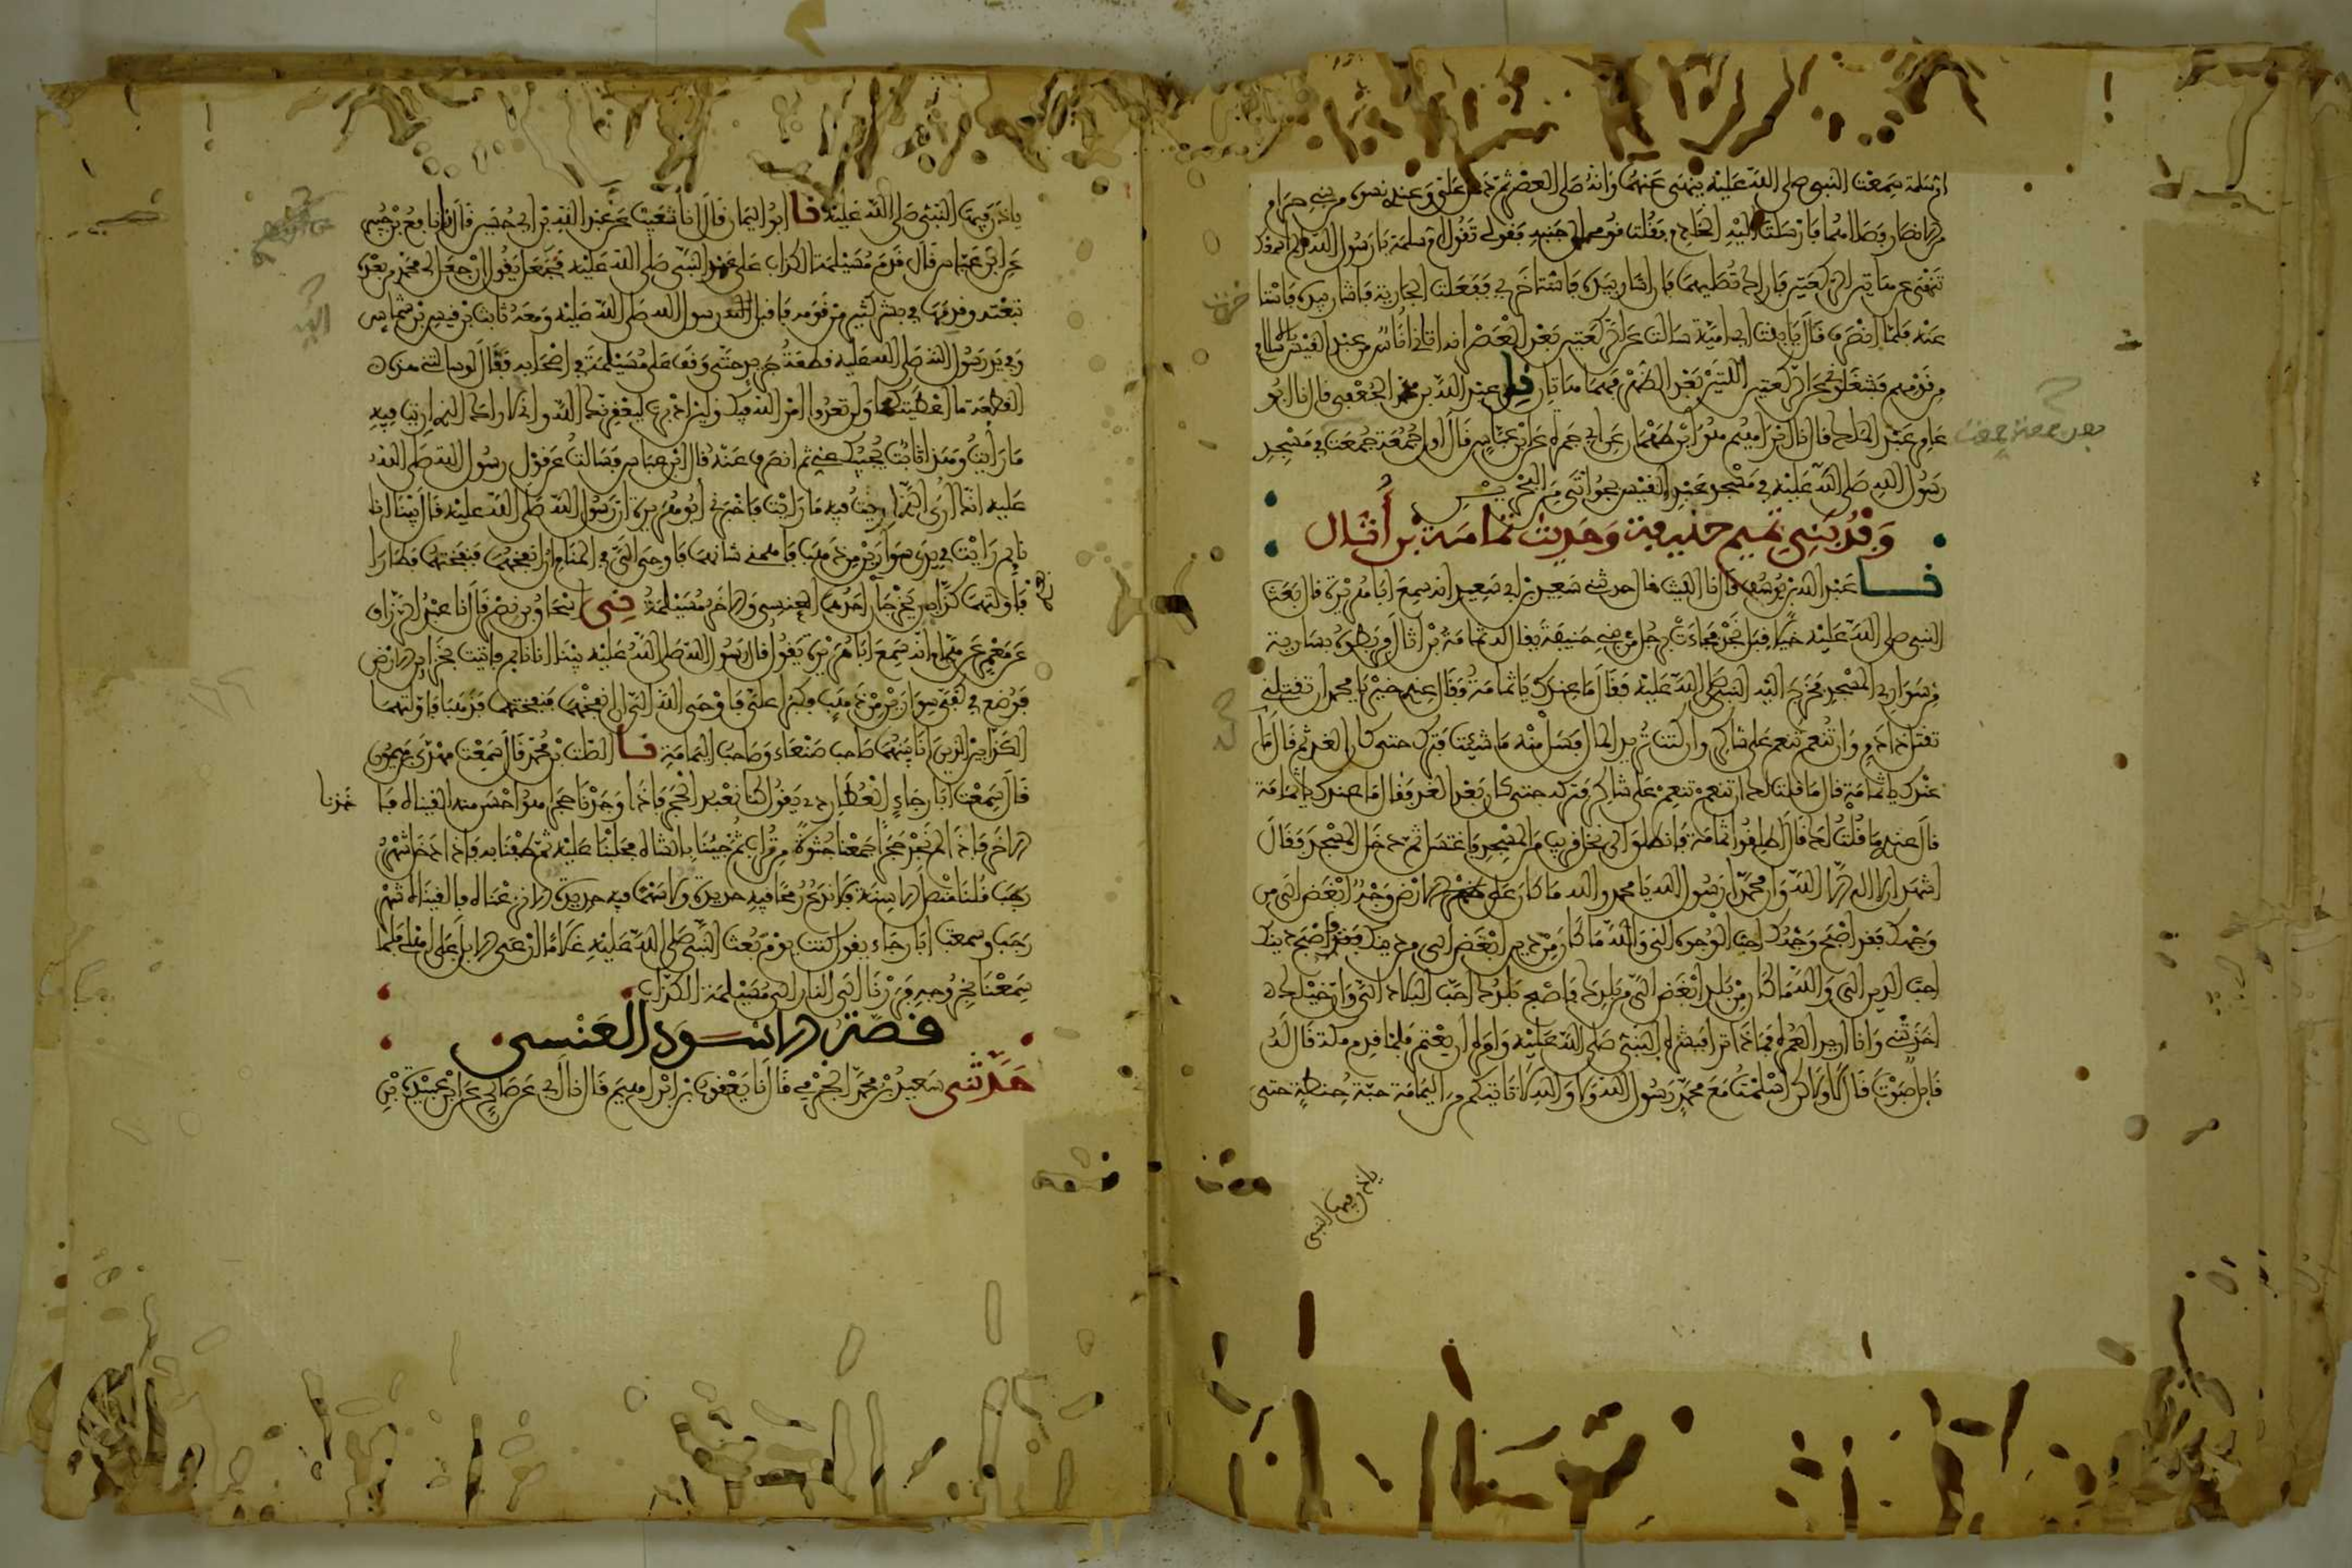 ام سلمة سمعت النبى صلى الله عليه ينهى عنهما وانه صلى العصر ثم دخل على وعندى نسوة من بنى حرام
من الانصار فصلاهما فارسلت اليه الخادم فقلت قومى الى جنبه فقولى تقول ام سلمة يا رسول الله الم اسمعك
تنهى عن هاتين الركعتين فاراك تصليهما فان اشار بيده فاستاخرى ففعلت الجارية فاشار بيده فاستاخرت
عنه فلما انصرف قال يا بنت ابى امية سالت عن الركعتين بعد العصر انه اتانى اناس من عبد القيس بالاسلام
من قومهم فشغلونى عن الركعتين اللتين بعد الظهر فهما هاتان نا عبد الله بن محمد الجعفى قال نا ابو
عامر عبد الملك قال نا ابراهيم هو ابن طهمان عن ابى جمرة عن ابن عباس قال اول جمعة جمعت فى مسجد
رسول الله صلى الله عليه فى مسجد عبد القيس بجواثى من البحرين
وفد بنى تميم حنيفة وحديث ثمامة بن أثال
نا عبد الله بن يوسف قال نا الليث قال حدثنى سعيد بن ابى سعيد انه سمع ابا هريرة قال بعث
النبى صلى الله عليه خيلا قبل نجد فجاءت برجل من بنى حنيفة يقال له ثمامة بن اثال فربطوه بسارية
من سوارى المسجد فخرج اليه النبى صلى الله عليه فقال ما عندك يا ثمامة فقال عندى خير يا محمد ان تقتلنى
تقتل ذا دم وان تنعم تنعم على شاكر وان كنت تريد المال فسل منه ما شئت فترك حتى كان الغد ثم قال ما
عندك يا ثمامة قال ما قلت لك ان تنعم تنعم على شاكر فتركه حتى كان بعد الغد فقال ما عندك يا ثمامة
قال عندى ما قلت لك قال اطلقوا ثمامة فانطلق الى نخل قريب من المسجد فاغتسل ثم دخل المسجد فقال
اشهد ان لا اله الا الله وان محمدا رسول الله يا محمد والله ما كان على الارض وجه ابغض الى من
وجهك فقد اصبح وجهك احب الوجوه الى والله ما كان من دين ابغض الى من دينك فقد اصبح دينك
احب الدين الى والله ما كان من بلد ابغض الى من بلدك فاصبح بلدك احب البلاد الى وان خيلك
اخذتنى وانا اريد العمرة فماذا ترى فبشره النبى صلى الله عليه وامره ان يعتمر فلما قدم مكة قال له
قائل صبوت قال لا ولاكن اسلمت مع محمد رسول الله ولا والله لا تاتيكم من اليمامة حبة حنطة حتى
ياذن فيها النبى
ياذن فيها النبى صلى الله عليه نا ابو اليمان قال انا شعيب عن عبد الله بن ابى حسين قال نا نافع بن جبير
عن ابن عباس قال قدم مسيلمة الكذاب على عهد النبى صلى الله عليه فجعل يقول ان جعل لى محمد من بعده
تبعته وقدمها فى بشر كثير من قومه فاقبل اليه رسول الله صلى الله عليه ومعه ثابت بن قيس بن شماس
وفى يد رسول الله صلى الله عليه قطعة جريد حتى وقف على مسيلمة فى اصحابه فقال لو سالتنى هذه
القطعة ما اعطيتكها ولن تعدوا امر الله فيك ولين ادبرت ليعقرنك الله وانى لاراك الذى اريت فيه
ما رايت وهذا ثابت يجيبك عنى ثم انصرف عنه قال ابن عباس فسالت عن قول رسول الله صلى الله
عليه انك ارى الذى اريت فيه ما رايت فاخبرنى ابو هريرة ان رسول الله صلى الله عليه قال بينا انا
نايم رايت فى يدى سوارين من ذهب فاهمنى شانهما فاوحى الى فى المنام ان انفخهما فنفختهما فطارا
فاولتهما كذابين يخرجان احدهما العنسى والاخر مسيلمة نى اسحاق بن نصر قال نا عبد الرزاق
عن معمر عن همام انه سمع ابا هريرة يقول قال رسول الله صلى الله عليه بينا انا نايم فاتيت بخزاين الارض
فوضع فى كفى سواران من ذهب فكبرا على فاوحى الله الى ان انفخهما فنفختهما فذهبا فاولتهما
الكذابين الذين انا بينهما صاحب صنعاء وصاحب اليمامة نا الصلت بن محمد قال سمعت مهدى بن ميمون
قال سمعت ابا رجاء العطاردى يقول كنا نعبد الحجر فاذا وجدنا حجرا هو احسن منه القيناه واخذنا
الاخر فاذا لم نجد حجرا جمعنا جثوة من تراب ثم جينا بالشاة فحلبنا عليه ثم طفنا به فاذا دخل شهر
رجب قلنا منصل الاسنة فلا ندع رمحا فيه حديدة ولا سهما فيه حديدة الا نزعناه والقيناه شهر
رجب وسمعت ابا رجاء يقول كنت يوم بعث النبى صلى الله عليه غلاما ارعى الابل على اهلى فلما
سمعنا بخروجه فررنا الى النار الى مسيلمة الكذاب
قصة الاسود العنسى
حدثنى سعيد بن محمد الجرمى قال نا يعقوب بن ابراهيم قال نا ابى عن صالح عن ابن عبيدة بن